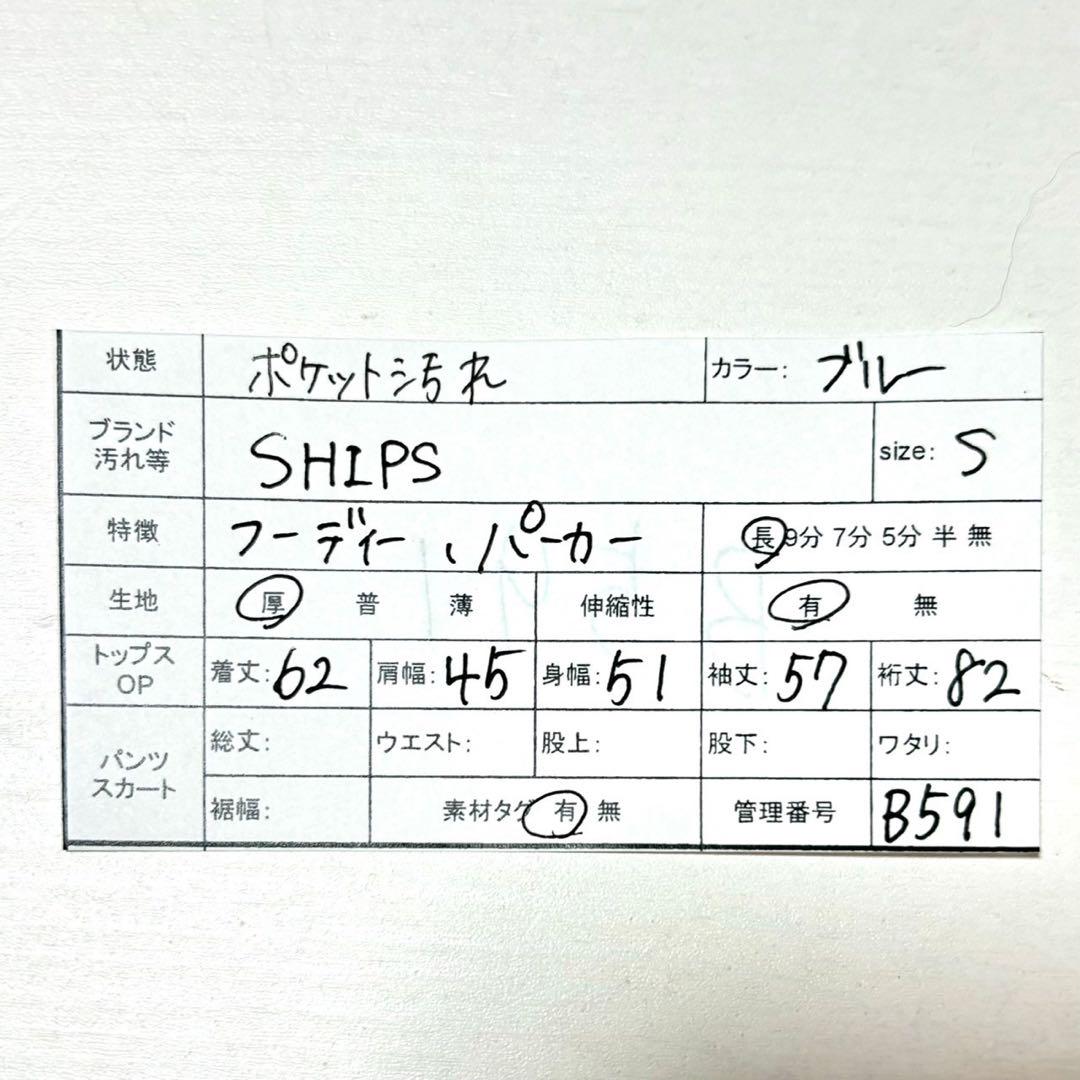 状態 ポケット汚れ カラー: ブルー
ブランド
汚れ等 SHIPS size: S
特徴 フーディー、パーカー 長 9分 7分 5分 半 無
生地 厚 普 薄 伸縮性 有 無
トップス
OP 着丈: 62 肩幅: 45 身幅: 51 袖丈: 57 裄丈: 82
パンツ
スカート
総丈: ウエスト: 股上: 股下: ワタリ:
裾幅: 素材タグ 有 無 管理番号 B591